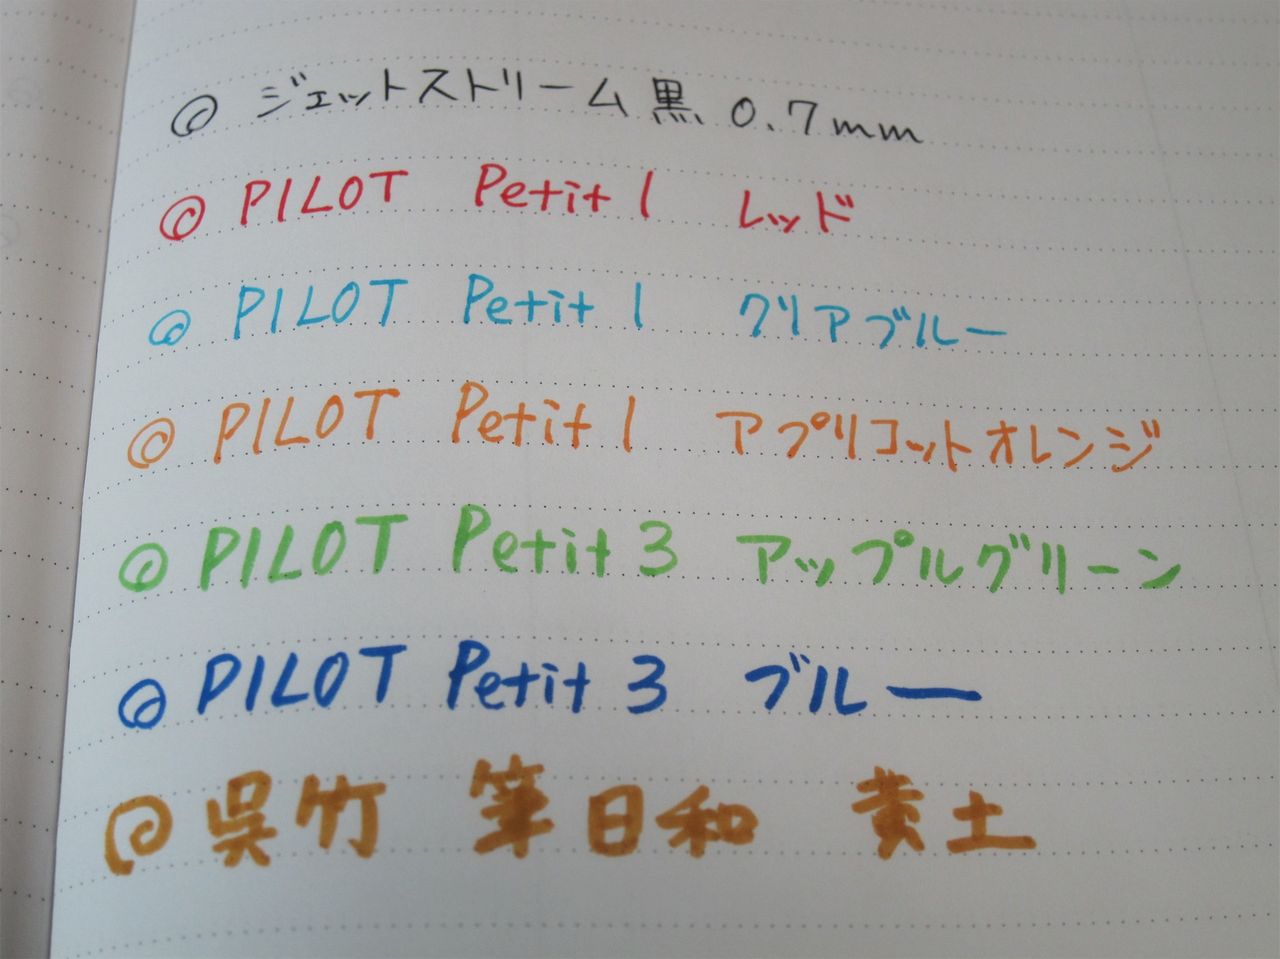 ジェットストリーム 黒 0.7mm
PILOT Petit 1 レッド
PILOT Petit 1 クリアブルー
PILOT Petit 1 アプリコットオレンジ
PILOT Petit 3 アップルグリーン
PILOT Petit 3 ブルー
呉竹 筆日和 黄土